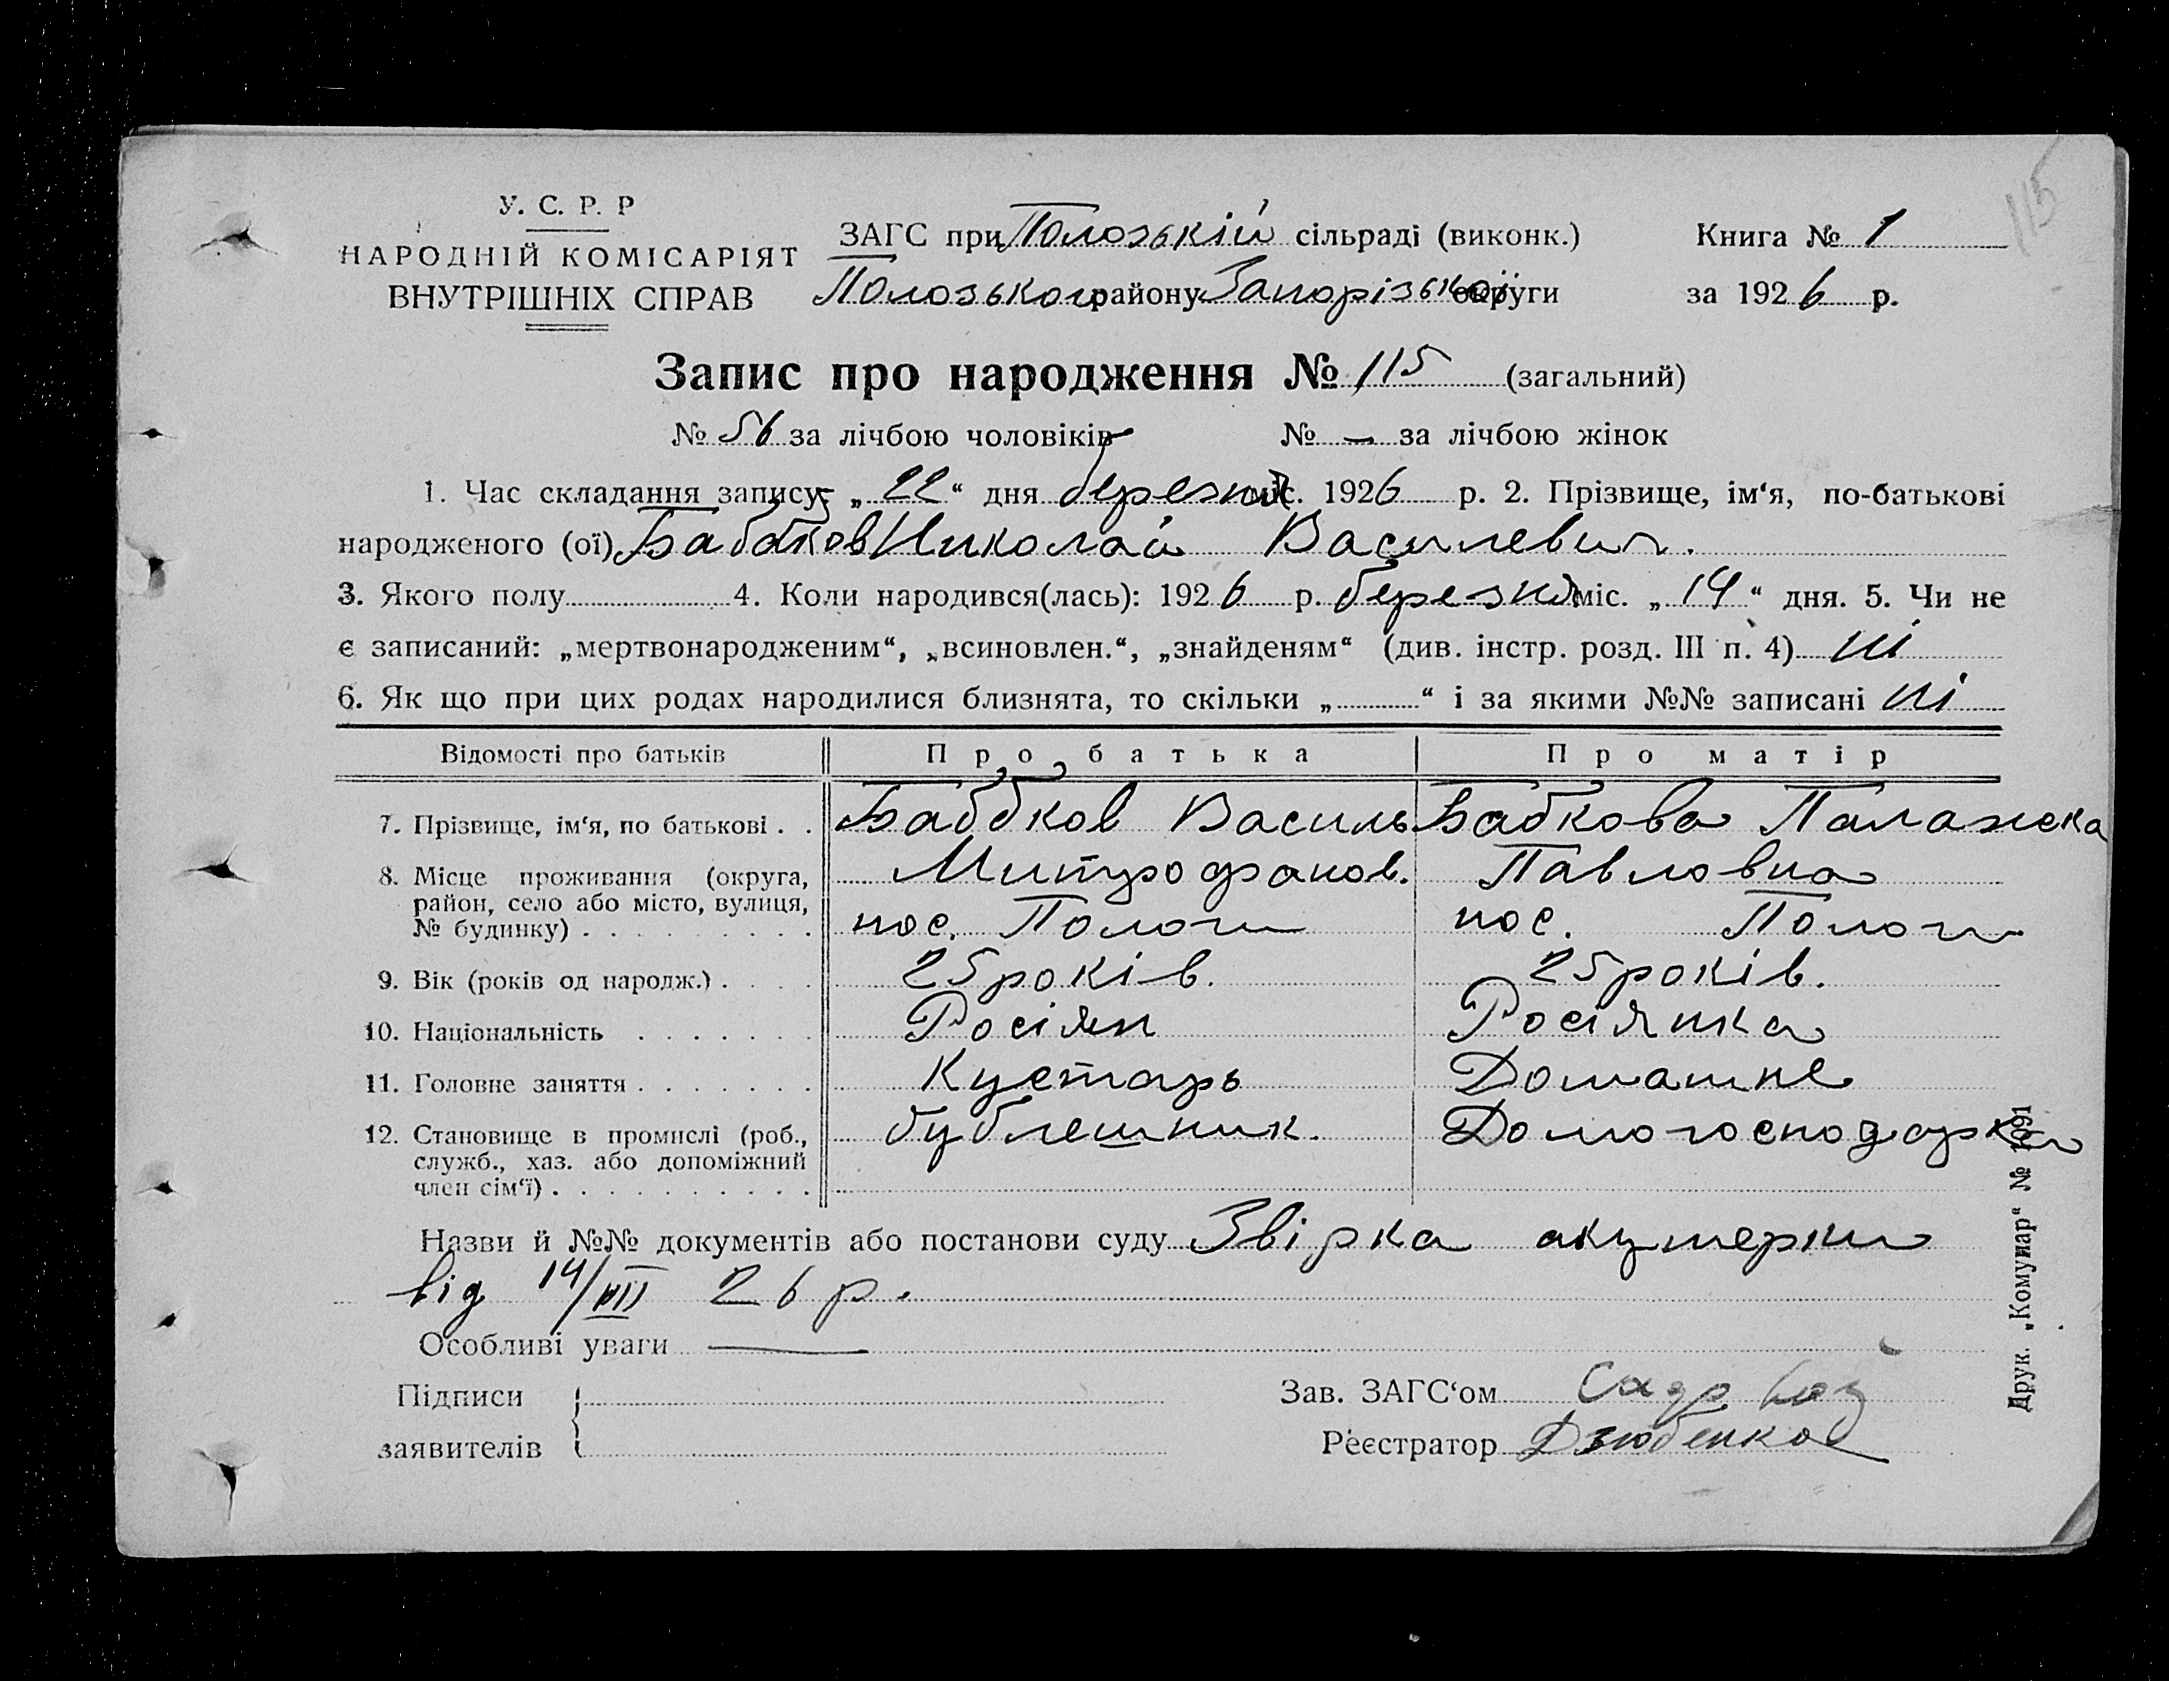 115
У. С. Р. Р
НАРОДНІЙ КОМІСАРІЯТ
ВНУТРІШНІХ СПРАВ
ЗАГС при Полозькій сільраді (виконк.)
Полозького району Запорізької округи
Книга № 1
за 1926 р.
Запис про народження № 115 (загальний)
№ 56 за лічбою чоловіків № — за лічбою жінок
1. Час складання запису: „22“ дня березня міс. 1926 р. 2. Прізвище, ім‘я, по-батькові
народженого (ої) Бабков Николай Василевич.
3. Якого полу 4. Коли народився(лась): 1926 р. березня міс. „14“ дня. 5. Чи не
є записаний: „мертвонародженим“, „всиновлен.“, „знайденям“ (див. інстр. розд. III п. 4) ні
6. Як що при цих родах народилися близнята, то скільки „ “ і за якими №№ записані ні
Відомості про батьків Про батька Про матір
7. Прізвище, ім‘я, по батькові . . Бабков Василь Бабкова Палажка
Митрофанов. Павловна
8. Місце проживання (округа,
район, село або місто, вулиця,
№ будинку) . . . . . . . . . пос. Пологи пос. Пологи
9. Вік (років од народж.) . . . . 25 років. 25 років.
10. Національність . . . . . . . Росіян Росіянка
11. Головне заняття . . . . . . . Кустарь Домашнє
12. Становище в промислі (роб.,
служб., хаз. або допоміжний
член сім‘ї) . . . . . . . . . . бублешник. Домогосподарка
Назви й №№ документів або постанови суду Звірка акушерки
від 14/III 26 р.
Особливі уваги —
Підписи
заявителів
Зав. ЗАГС‘ом
Реєстратор Дзюбенко
Друк. „Комунар“ № 1091